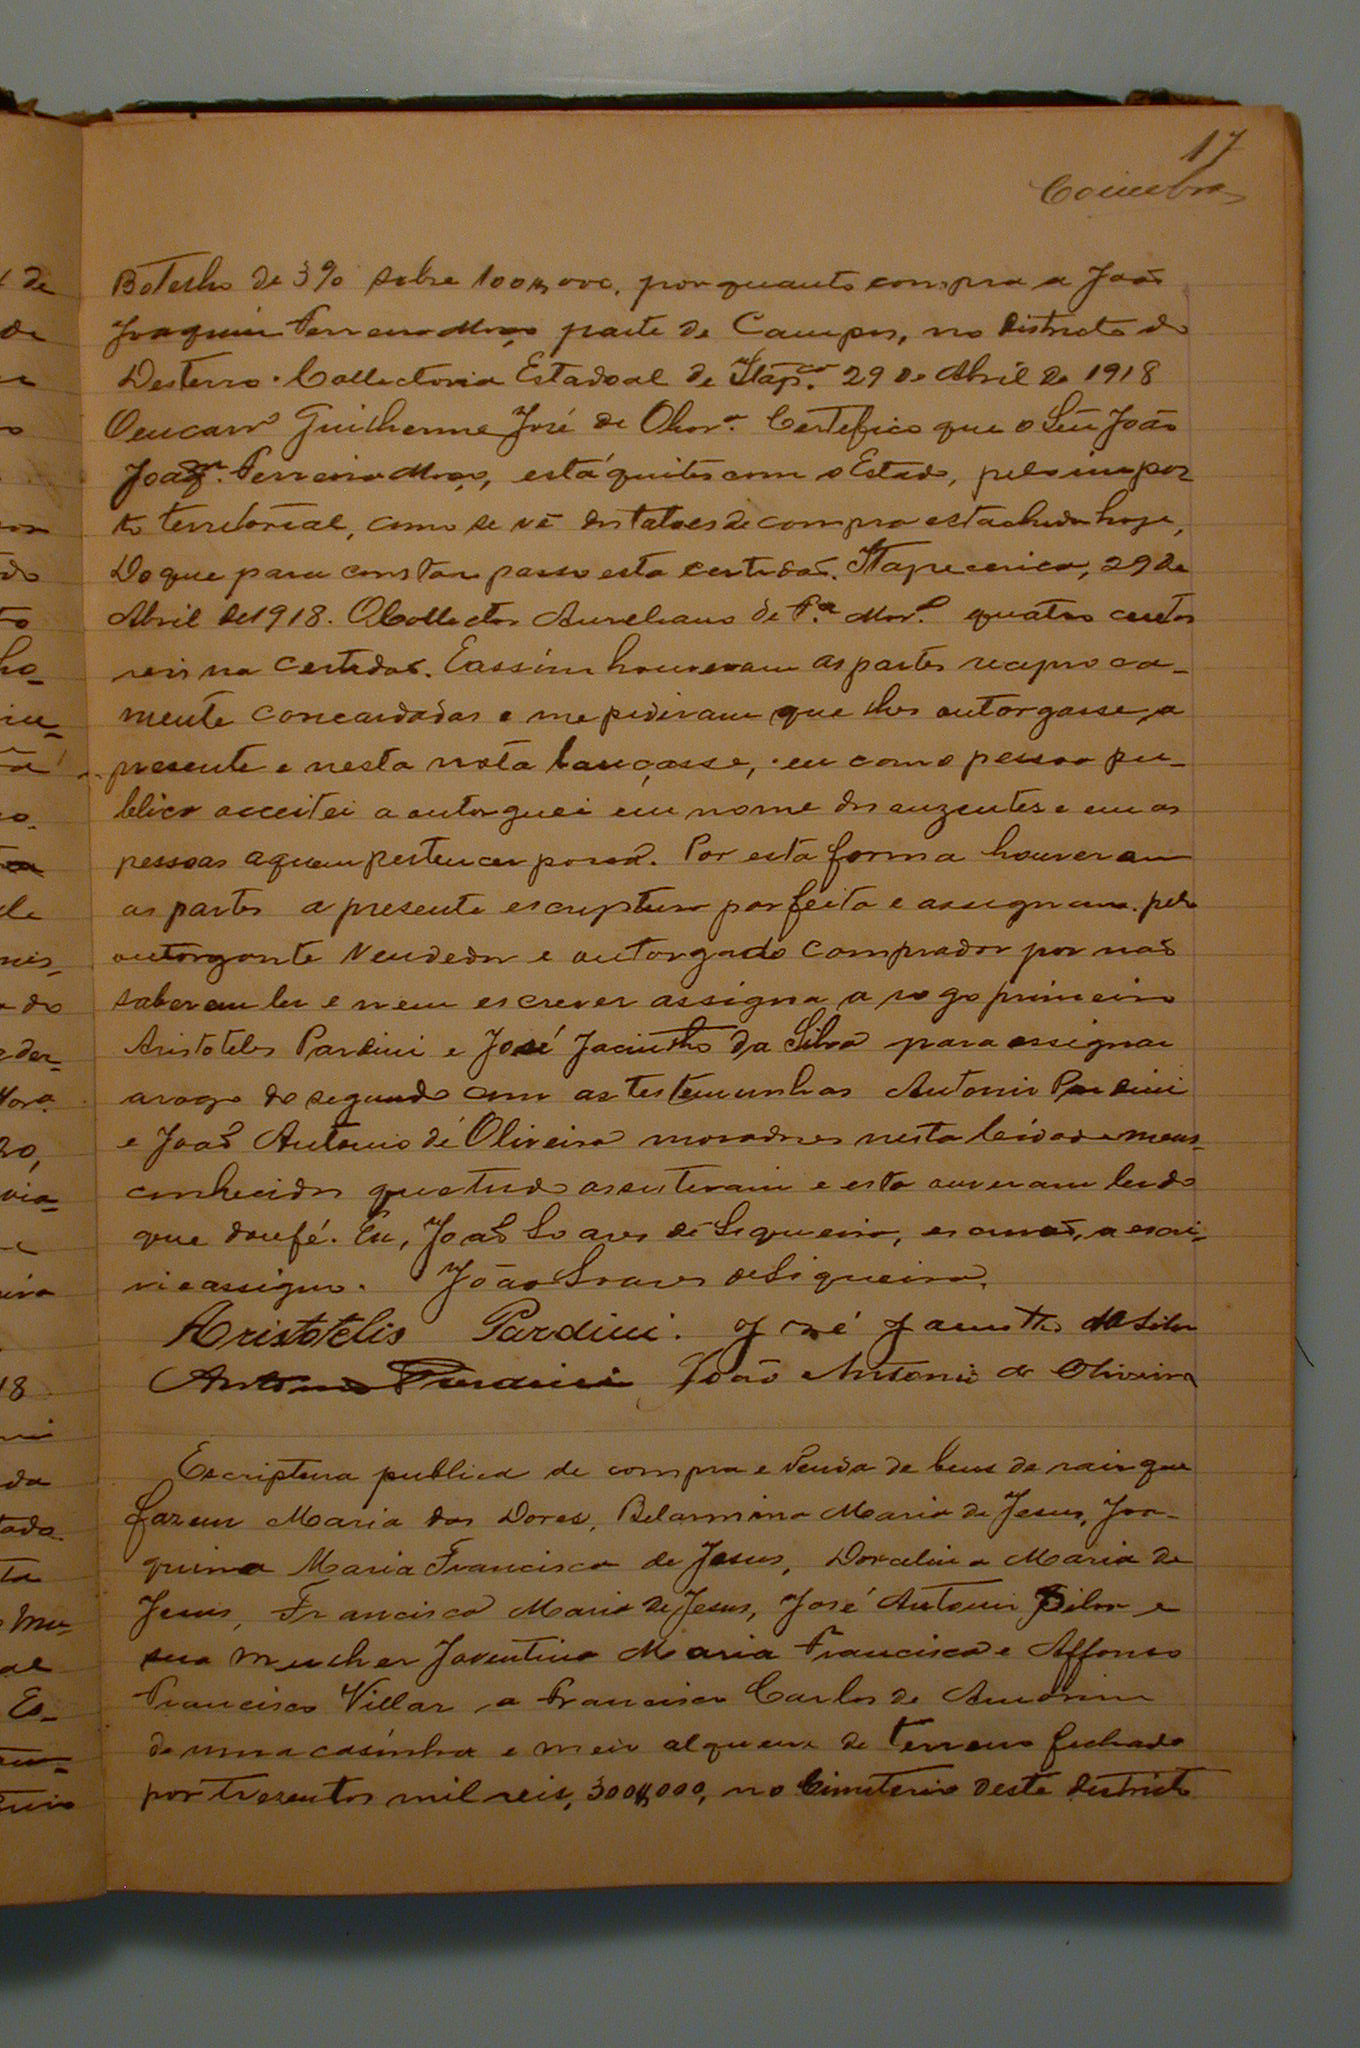 17
Coimbra
Botelho de 3% sobre 100$000, porquanto compra a João
Joaquim Ferreira Moço parte de Campos, no districto do
Desterro. Collectoria Estadoal de Itapca. 29 de Abril de 1918
Guilherme José de Olivr.a Certefico que o Snr João
Joaqm. Ferreira Moço, está quites com o Estado, pelo impos
to territorial, como se vê dos talões de compra esta hoje,
Do que para constar passo esta certidão. Itapecerica, 29 de
Abril de 1918. O Collector Aureliano de Mor.a quatro centos
reis na certidão. E assim houveram as partes recipro ca-
mente concordadas e me pediram que lhes outorgasse, a
presente e nesta nota lançasse, eu como pessoa pu-
blica acceitei a outorguei em nome dos auzentes e em as
pessoas a quem pertencer possa. Por esta forma houveram
as partes a presente escriptura por feita e assignam. pelo
outorgante Vendedor e outorgado comprador por não
saberem ler e nem escrever assigna a rogo primeiro
Aristoteles Pardini e José Jacintho da Silva para assignar
arogo do segundo com as testemunhas Antonio Pardini
e João Antonio de Oliveira moradores nesta Cidade meus
conhecidos que tudo assistiram e esta ouveram lendo
que dou fé. Eu, João Soares de Siqueira, escrivão, a escri-
vi e assigno. João Soares de Siqueira.
Aristotelis Pardini. José Jacintho da Silva
Antonio Pardini João Antonio de Oliveira
Escriptura publica de compra e Venda de bens de raiz que
fazem Maria das Dores, Belarmina Maria de Jesus, Joa-
quina Maria Francisca de Jesus, Dorcelina Maria de
Jesus, Francisca Maria de Jesus, José Antonio Silva e
sua mulher Joventina Maria Francisca e Affonso
Francisco Villar a Francisco Carlos de Amorim
de uma casinha e meio alqueire de terreno fechado
por trezentos mil reis, 300$000, no Cimiterio deste districto